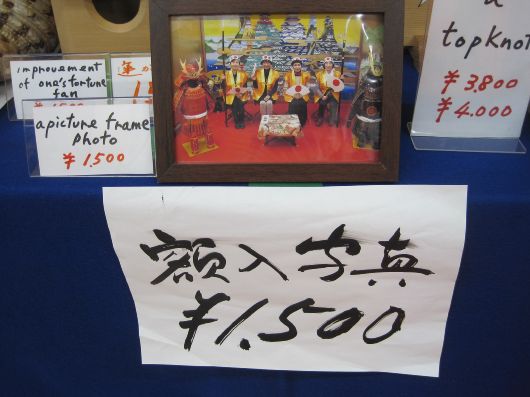 improvement
of one's fortune
fan
a picture frame
photo
¥1.500
topknot
¥3.800
¥4.000
額入写真
¥1.500